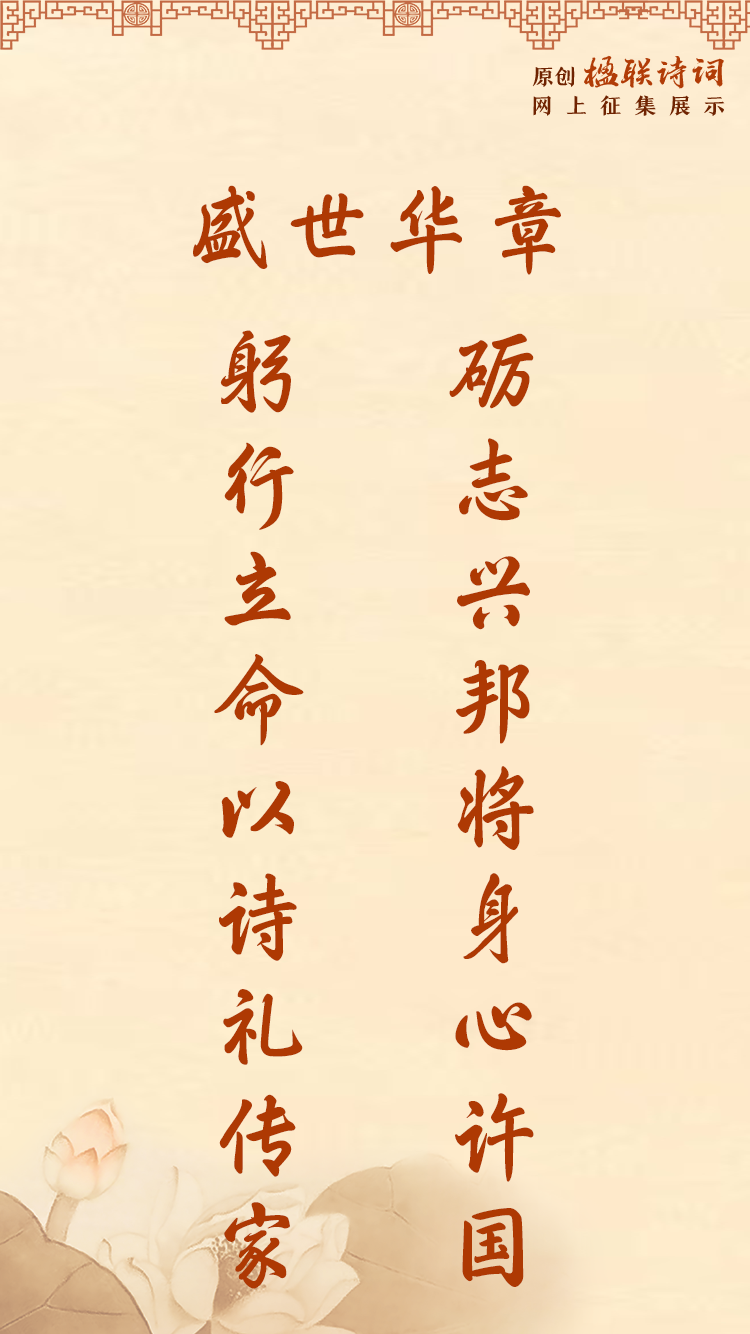 原创 楹联诗词
网上征集展示
盛世华章
砺志兴邦将身心许国
躬行立命以诗礼传家